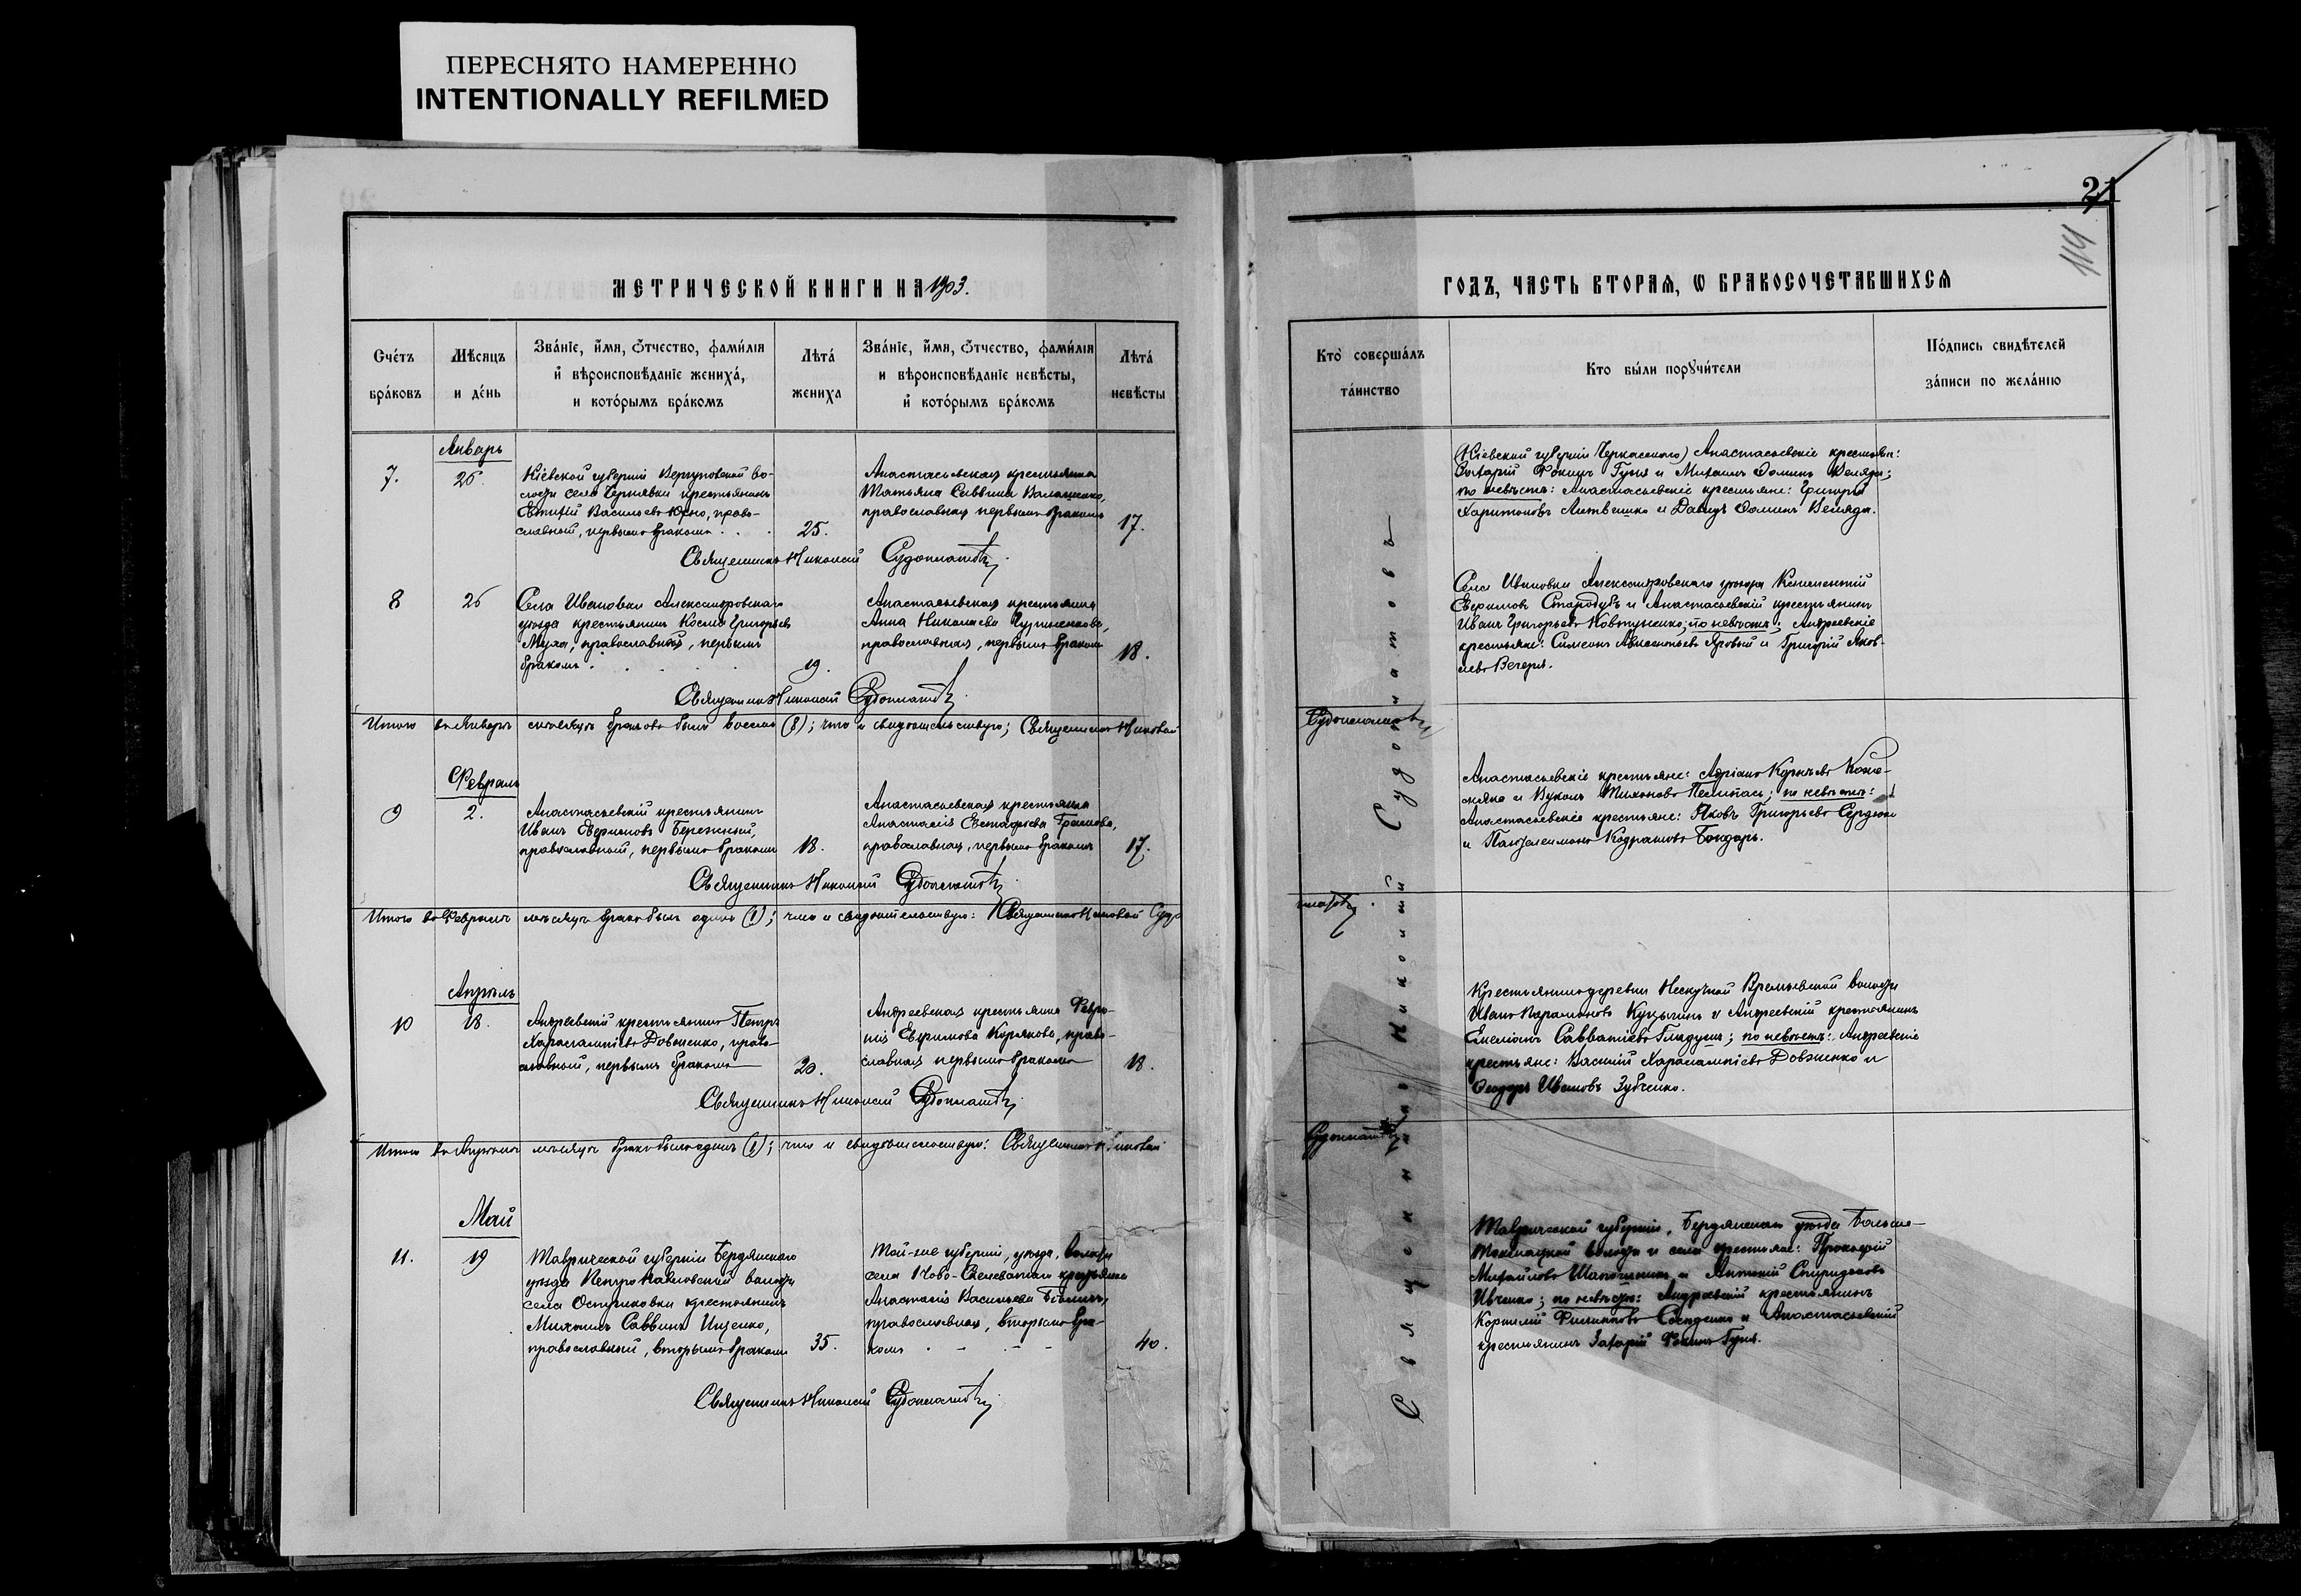 ПЕРЕСНЯТО НАМЕРЕННО
INTENTIONALLY REFILMED
МЕТРИЧЕСКОЙ КНИГИ НА 1903.
Счетъ браковъ
Мѣсяцъ и день
Званіе, имя, отчество, фамилія
и вѣроисповѣданіе жениха,
и которымъ бракомъ
Лѣта жениха
Званіе, имя, отчество, фамилія
и вѣроисповѣданіе невѣсты,
и которымъ бракомъ
Лѣта невѣсты
Январь
7.
26.
Кіевской губерніи Вергуновской во-
лости села крестьянинъ
Евтихій Васильевъ Юхно, право-
славный, первымъ бракомъ
25.
Анастасьевская крестьянка
Татьяна Саввина
православная первымъ бракомъ
17.
Священникъ Николай Судоплатовъ
8
26
Села Ивановки Александровскаго
уѣзда крестьянинъ Косма Григорьевъ
Муха, православный, первымъ
бракомъ
19.
Анастасьевская крестьянка
Анна Николаева
православная, первымъ бракомъ
18.
Священникъ Николай Судоплатовъ
Итого въ Январѣ мѣсяцѣ браковъ было восемь (8); что и свидѣтельствую; Священникъ Николай
Февраль
9
2.
Анастасьевскій крестьянинъ
Иванъ Ефримовъ Бережный,
православный, первымъ бракомъ
18.
Анастасьевская крестьянка
Анастасія Евстафьева
православная, первымъ бракомъ
17.
Священникъ Николай Судоплатовъ
Итого въ Февралѣ мѣсяцѣ бракъ былъ одинъ (1); что и свидѣтельствую: Священникъ Николай Судо
Апрѣль
10
18.
Андреевскій крестьянинъ Петръ
Харалампіевъ Довженко, право-
славный, первымъ бракомъ
20.
Андреевская крестьянка Февро-
нія Ефримова Корякова, право-
славная первымъ бракомъ
18.
Священникъ Николай Судоплатовъ
Итого въ Апрѣлѣ мѣсяцѣ бракъ былъ одинъ (1); что и свидѣтельствую: Священникъ Николай
Май
11.
19
Таврической губерніи Бердянскаго
уѣзда Петропавловской волости
села Остриковки крестьянинъ
Михаилъ Саввинъ Ищенко,
православный, вторымъ бракомъ
35.
Той-же губерніи, уѣзда, волости
села Ново- крестьянка
Анастасія Васильева
православная, вторымъ бра-
комъ
40.
Священникъ Николай Судоплатовъ
21
114
ГОДЪ, ЧАСТЬ ВТОРАЯ, Ѡ БРАКОСОЧЕТАВШИХСЯ
Кто совершалъ таинство
Кто были поручители
Подпись свидѣтелей
записи по желанію
Священникъ Николай Судоплатовъ
(Кіевской губерніи Черкасскаго) Анастасьевскіе крестьяне:
Захарій Фокинъ Гуня и Михаилъ Веляда;
по невѣстѣ: Анастасьевскіе крестьяне: Григорій
Харитоновъ Литвишко и Давидъ Веляда.
Села Ивановки Александровскаго уѣзда
Ефримовъ Стародубъ и Анастасьевскій крестьянинъ
Иванъ Григорьевъ Ковтуненко; по невѣстѣ: Андреевскіе
крестьяне: Симеонъ Яровый и Григорій Яков-
левъ Вечеря.
Судоплатовъ
Анастасьевскіе крестьяне: Адріанъ Коже-
мяка и Вуколъ Тихоновъ; по невѣстѣ:
Анастасьевскіе крестьяне: Яковъ Григорьевъ Сердюкъ
и Пантелеимонъ Бондарь.
платовъ.
Крестьянинъ деревни Нескучной Времьевской волости
Иванъ Парамоновъ и Андреевскій крестьянинъ
Емеліанъ Савватіевъ Гладушъ; по невѣстѣ: Андреевскіе
крестьяне: Василій Харалампіевъ Довженко и
Ѳеодоръ Ивановъ Зубченко.
Судоплатовъ
Таврической губерніи, Бердянскаго уѣзда Больше-
Токмацкой волости и села крестьяне: Прокофій
Михайловъ и Антоній Спиридоновъ
Ивченко; по невѣстѣ: Андреевскій крестьянинъ
Корнилій Филипповъ и Анастасьевскій
крестьянинъ Захарій Фокинъ Гуня.